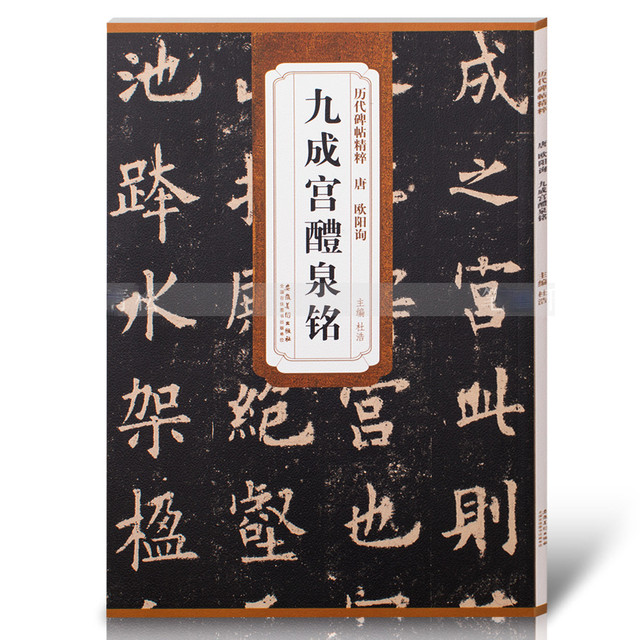 历代碑帖精粹 唐 欧阳询
九成宫醴泉铭
主编 杜浩
安徽美术出版社
成之宫此则
宫也
绝壑
池跸水架楹
历代碑帖精粹 唐 欧阳询 九成宫醴泉铭 主编 杜浩